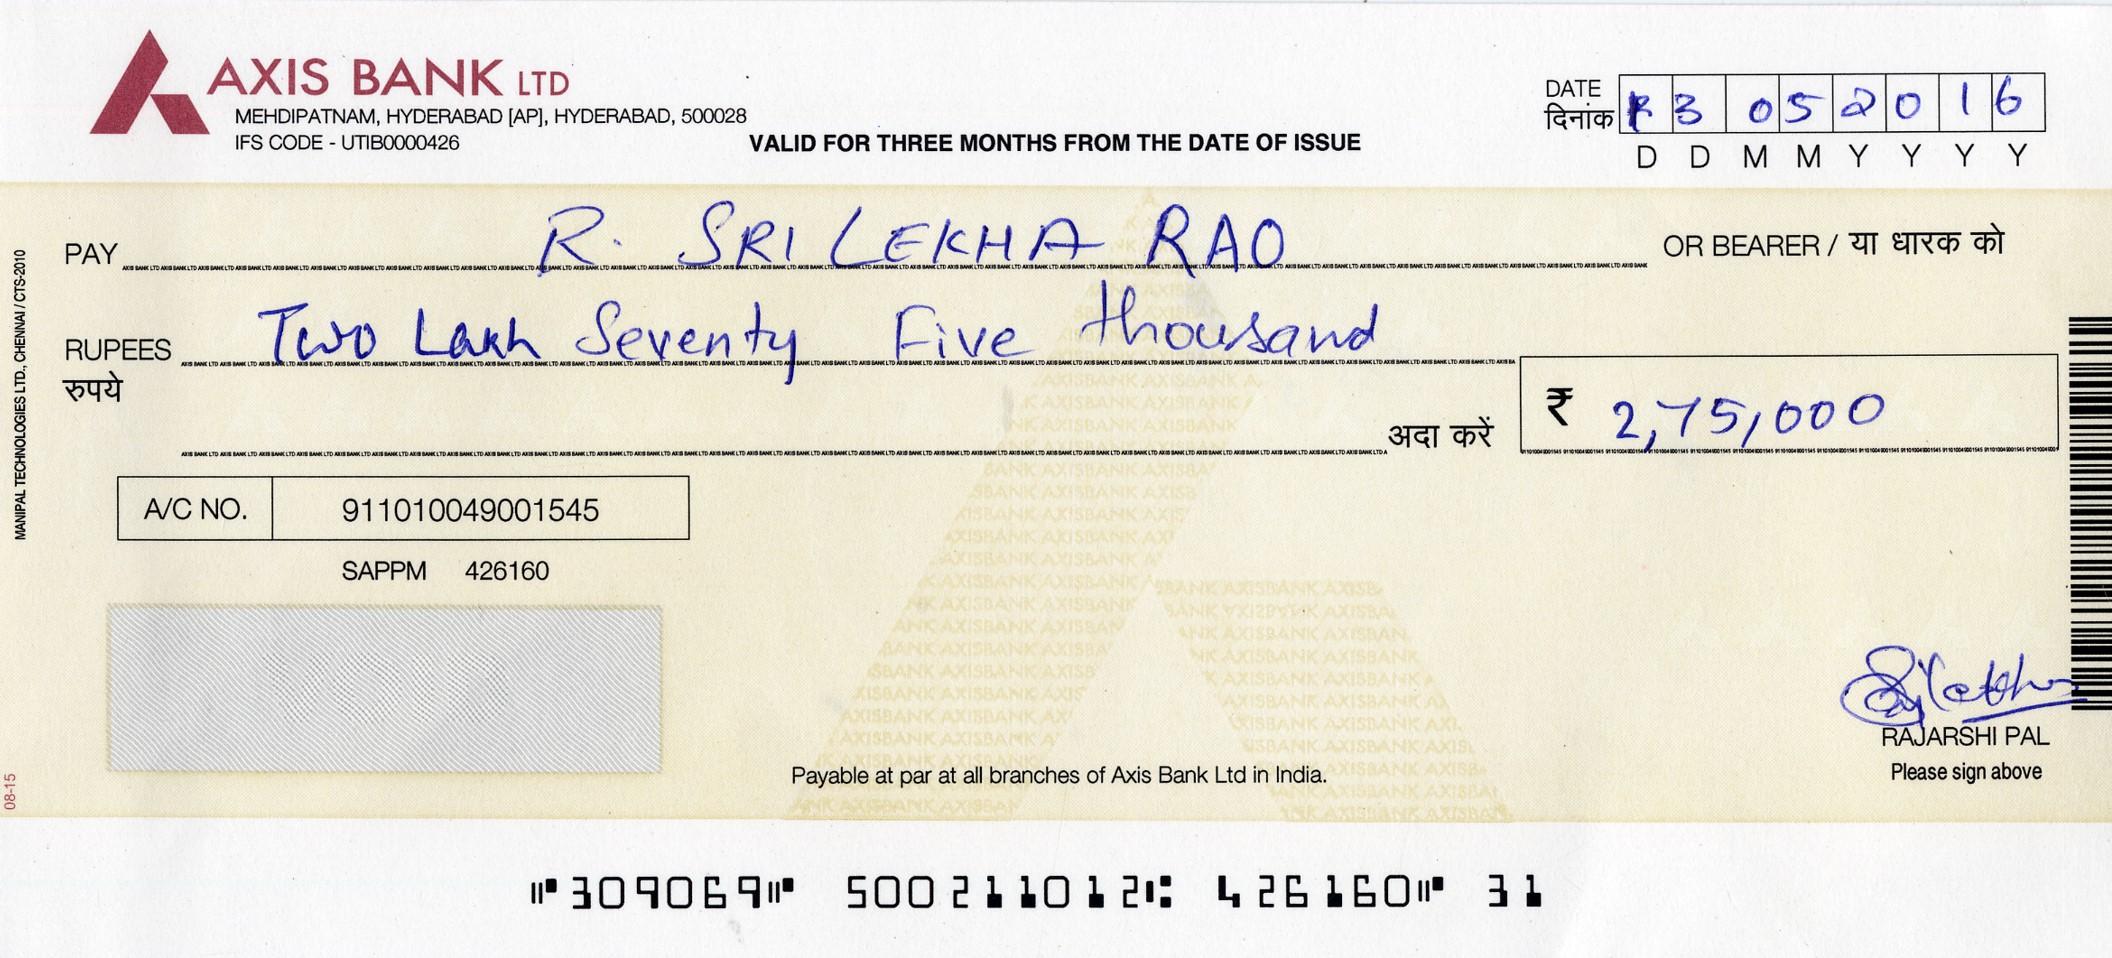 AXIS BANK LTD
MEHDIPATNAM, HYDERABAD [AP], HYDERABAD, 500028
IFS CODE - UTIB0000426
VALID FOR THREE MONTHS FROM THE DATE OF ISSUE
DATE
दिनांक 3 0 5 2 0 1 6
D D M M Y Y Y Y
PAY R. SRILEKHA RAO OR BEARER / या धारक को
RUPEES Two Lakh Seventy Five thousand
रुपये
अदा करें ₹ 2,75,000
A/C NO. 911010049001545
SAPPM 426160
RAJARSHI PAL
Please sign above
Payable at par at all branches of Axis Bank Ltd in India.
MANIPAL TECHNOLOGIES LTD., CHENNAI / CTS-2010
08-15
⑈309069⑈ 500211012⑆ 426160⑈ 31